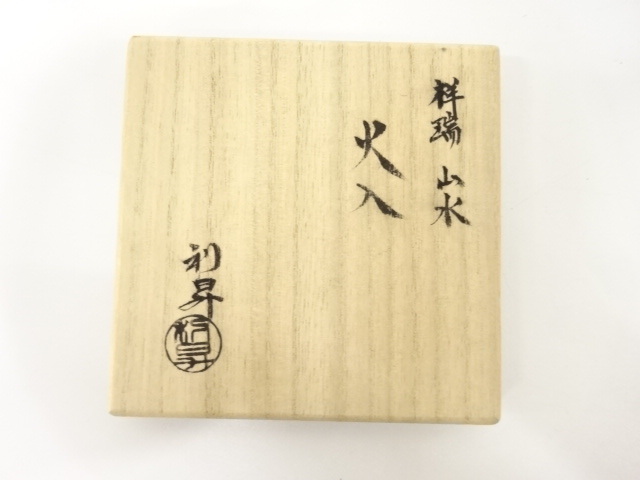 祥瑞 山水
火入
利昇
利昇